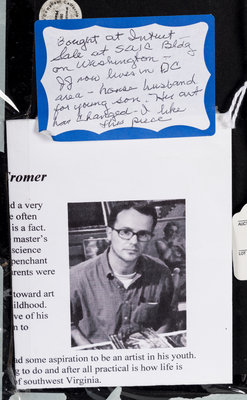 Bought at Intuit
Sale at SAIC Bldg
on Washington -
now lives in DC
area - house husband
for young son. His art
has changed - I like
this piece
romer
d a very
e often
is a fact.
master's
science
penchant
rents were
toward art
ildhood.
ve of his
n to
ad some aspiration to be an artist in his youth.
g to do and after all practical is how life is
of southwest Virginia.
LOT